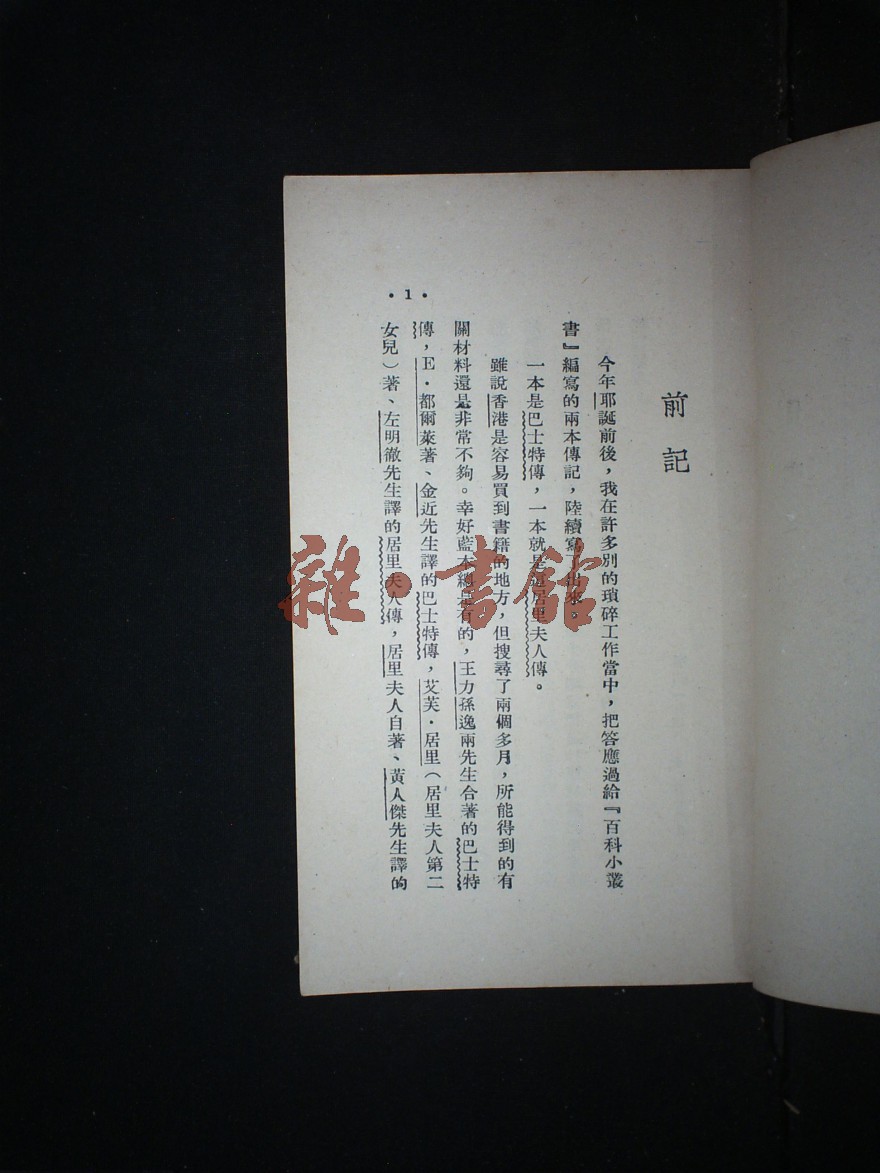 前記
今年耶誕前後，我在許多別的瑣碎工作當中，把答應過給『百科小叢
書』編寫的兩本傳記，陸續寫了出來。
一本是巴士特傳，一本就是這居里夫人傳。
雖說香港是容易買到書籍的地方，但搜尋了兩個多月，所能得到的有
關材料還是非常不夠。幸好藍本總是有的，王力孫逸兩先生合著的巴士特
傳，E·都爾萊著、金近先生譯的巴士特傳，艾芙·居里（居里夫人第二
女兒）著、左明徹先生譯的居里夫人傳，居里夫人自著、黃人傑先生譯的
·1·
雜·書館